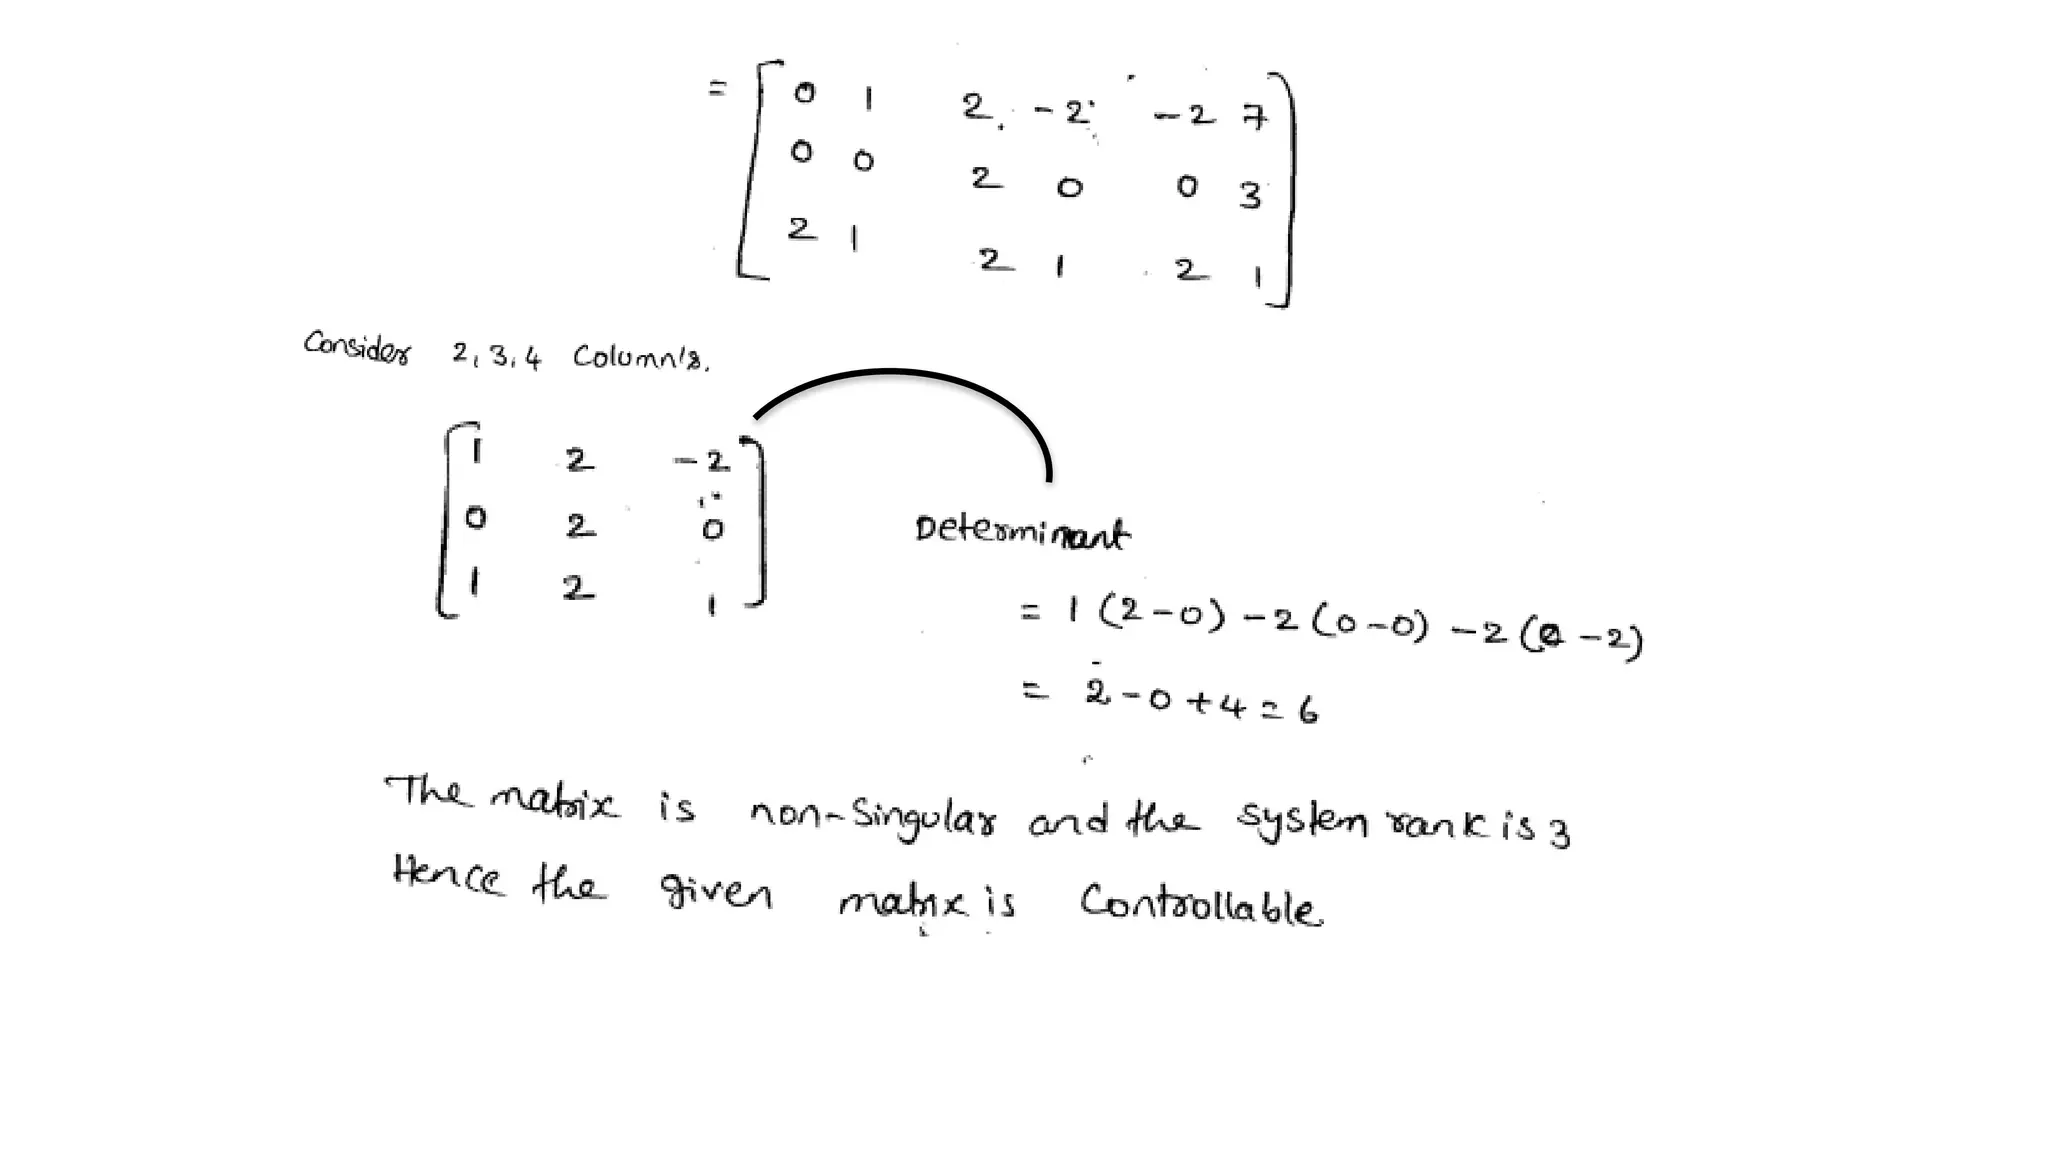 = [ 0 1 2 -2 -2 7
0 0 2 0 0 3
2 1 2 1 2 1 ]
Consider 2, 3, 4 Column's.
[ 1 2 -2
0 2 0
1 2 1 ]
Determinant
= 1 (2-0) -2 (0-0) -2 (0 -2)
= 2 -0 +4 = 6
The matrix is non-Singular and the system rank is 3
Hence the given matrix is Controllable.